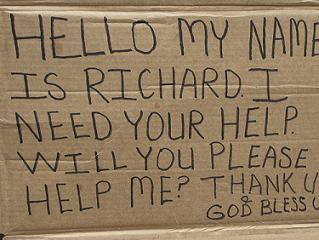 HELLO MY NAME
IS RICHARD. I
NEED YOUR HELP.
WILL YOU PLEASE
HELP ME? THANK U
& GOD BLESS U